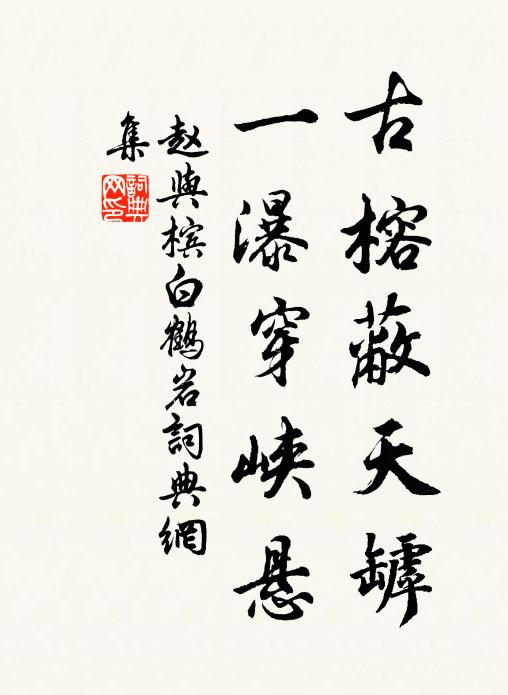 古榕蔽天罅
一瀑穿峡悬
赵與槟白鶴岩詞典網
集
詞典
网印